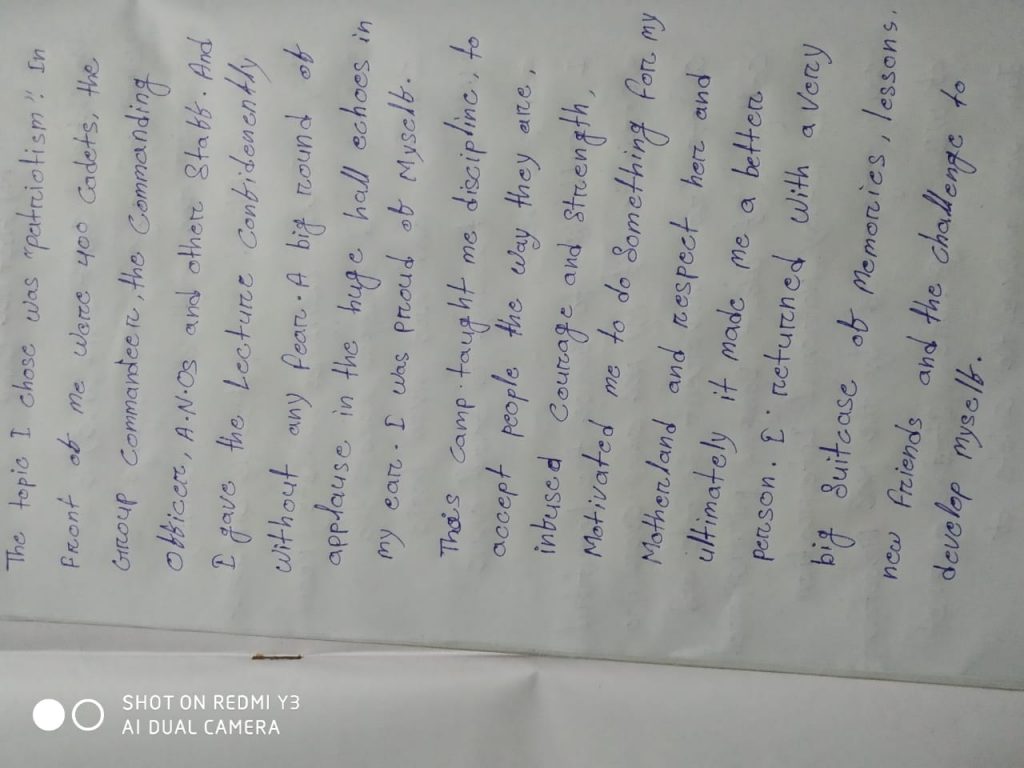 The topic I chose was "patriotism". In
Front of me were 400 Cadets, the
Group Commandeer, the Commanding
Officer, A.N.Os and other Staff. And
I gave the Lecture Confidenently
Without any fear. A big round of
applause in the huge hall echoes in
my ear. I was proud of Myself.
This camp taught me discipline, to
accept people the way they are,
inbused Courage and Strength,
Motivated me to do Something for my
Motherland and respect her and
ultimately it made me a better
person. I returned With a very
big Suitcase of Memories, lessons,
new friends and the challenge to
develop myself.
SHOT ON REDMI Y3
AI DUAL CAMERA